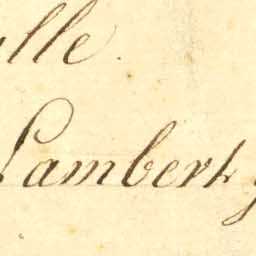 lle.
Lambert